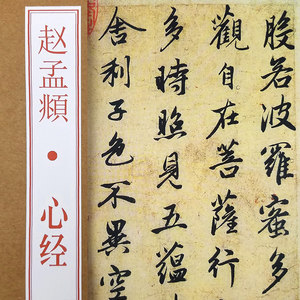 赵孟頫·心经
般若波羅蜜多
觀自在菩薩行
多時照見五蘊
舍利子色不異空